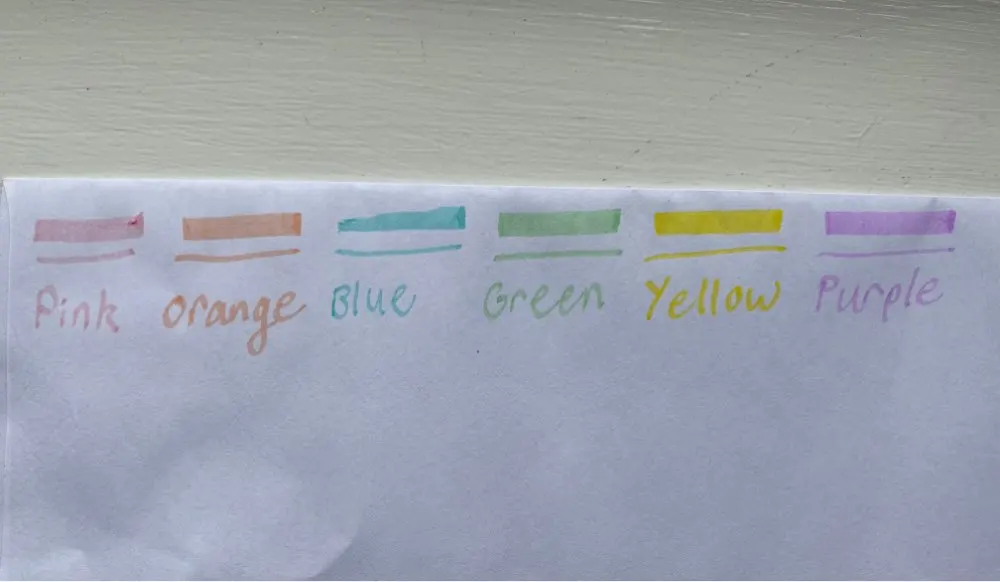 Pink Orange Blue Green Yellow Purple